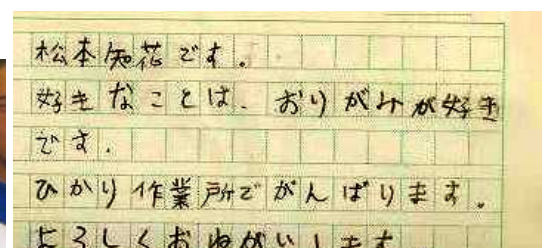 松本知花です。
好きなことは、おりがみが好き
です.
ひかり作業所でがんばります。
よろしくおねがいします